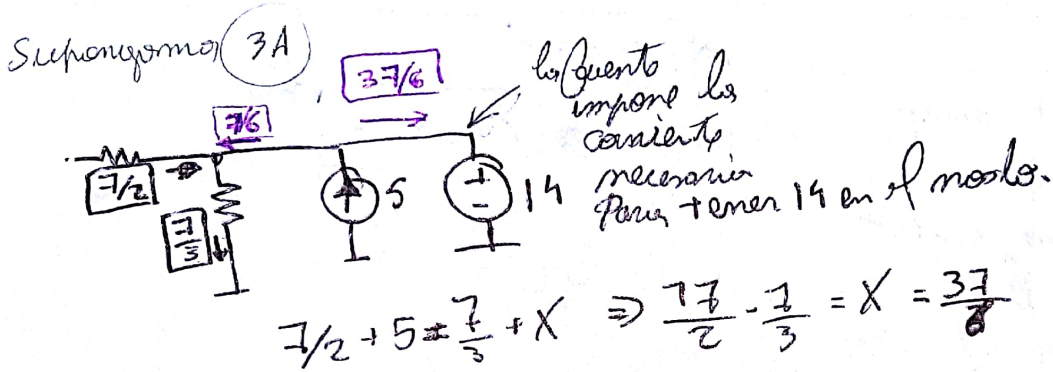 Supongamos 3A
37/6
la fuente
impone la
corriente
necesaria
Para tener 14 en el nodo.
7/6
7/2
7/3
5
+
-
14
7/2 + 5 = 7/3 + X ⇒ 17/2 - 7/3 = X = 37/6